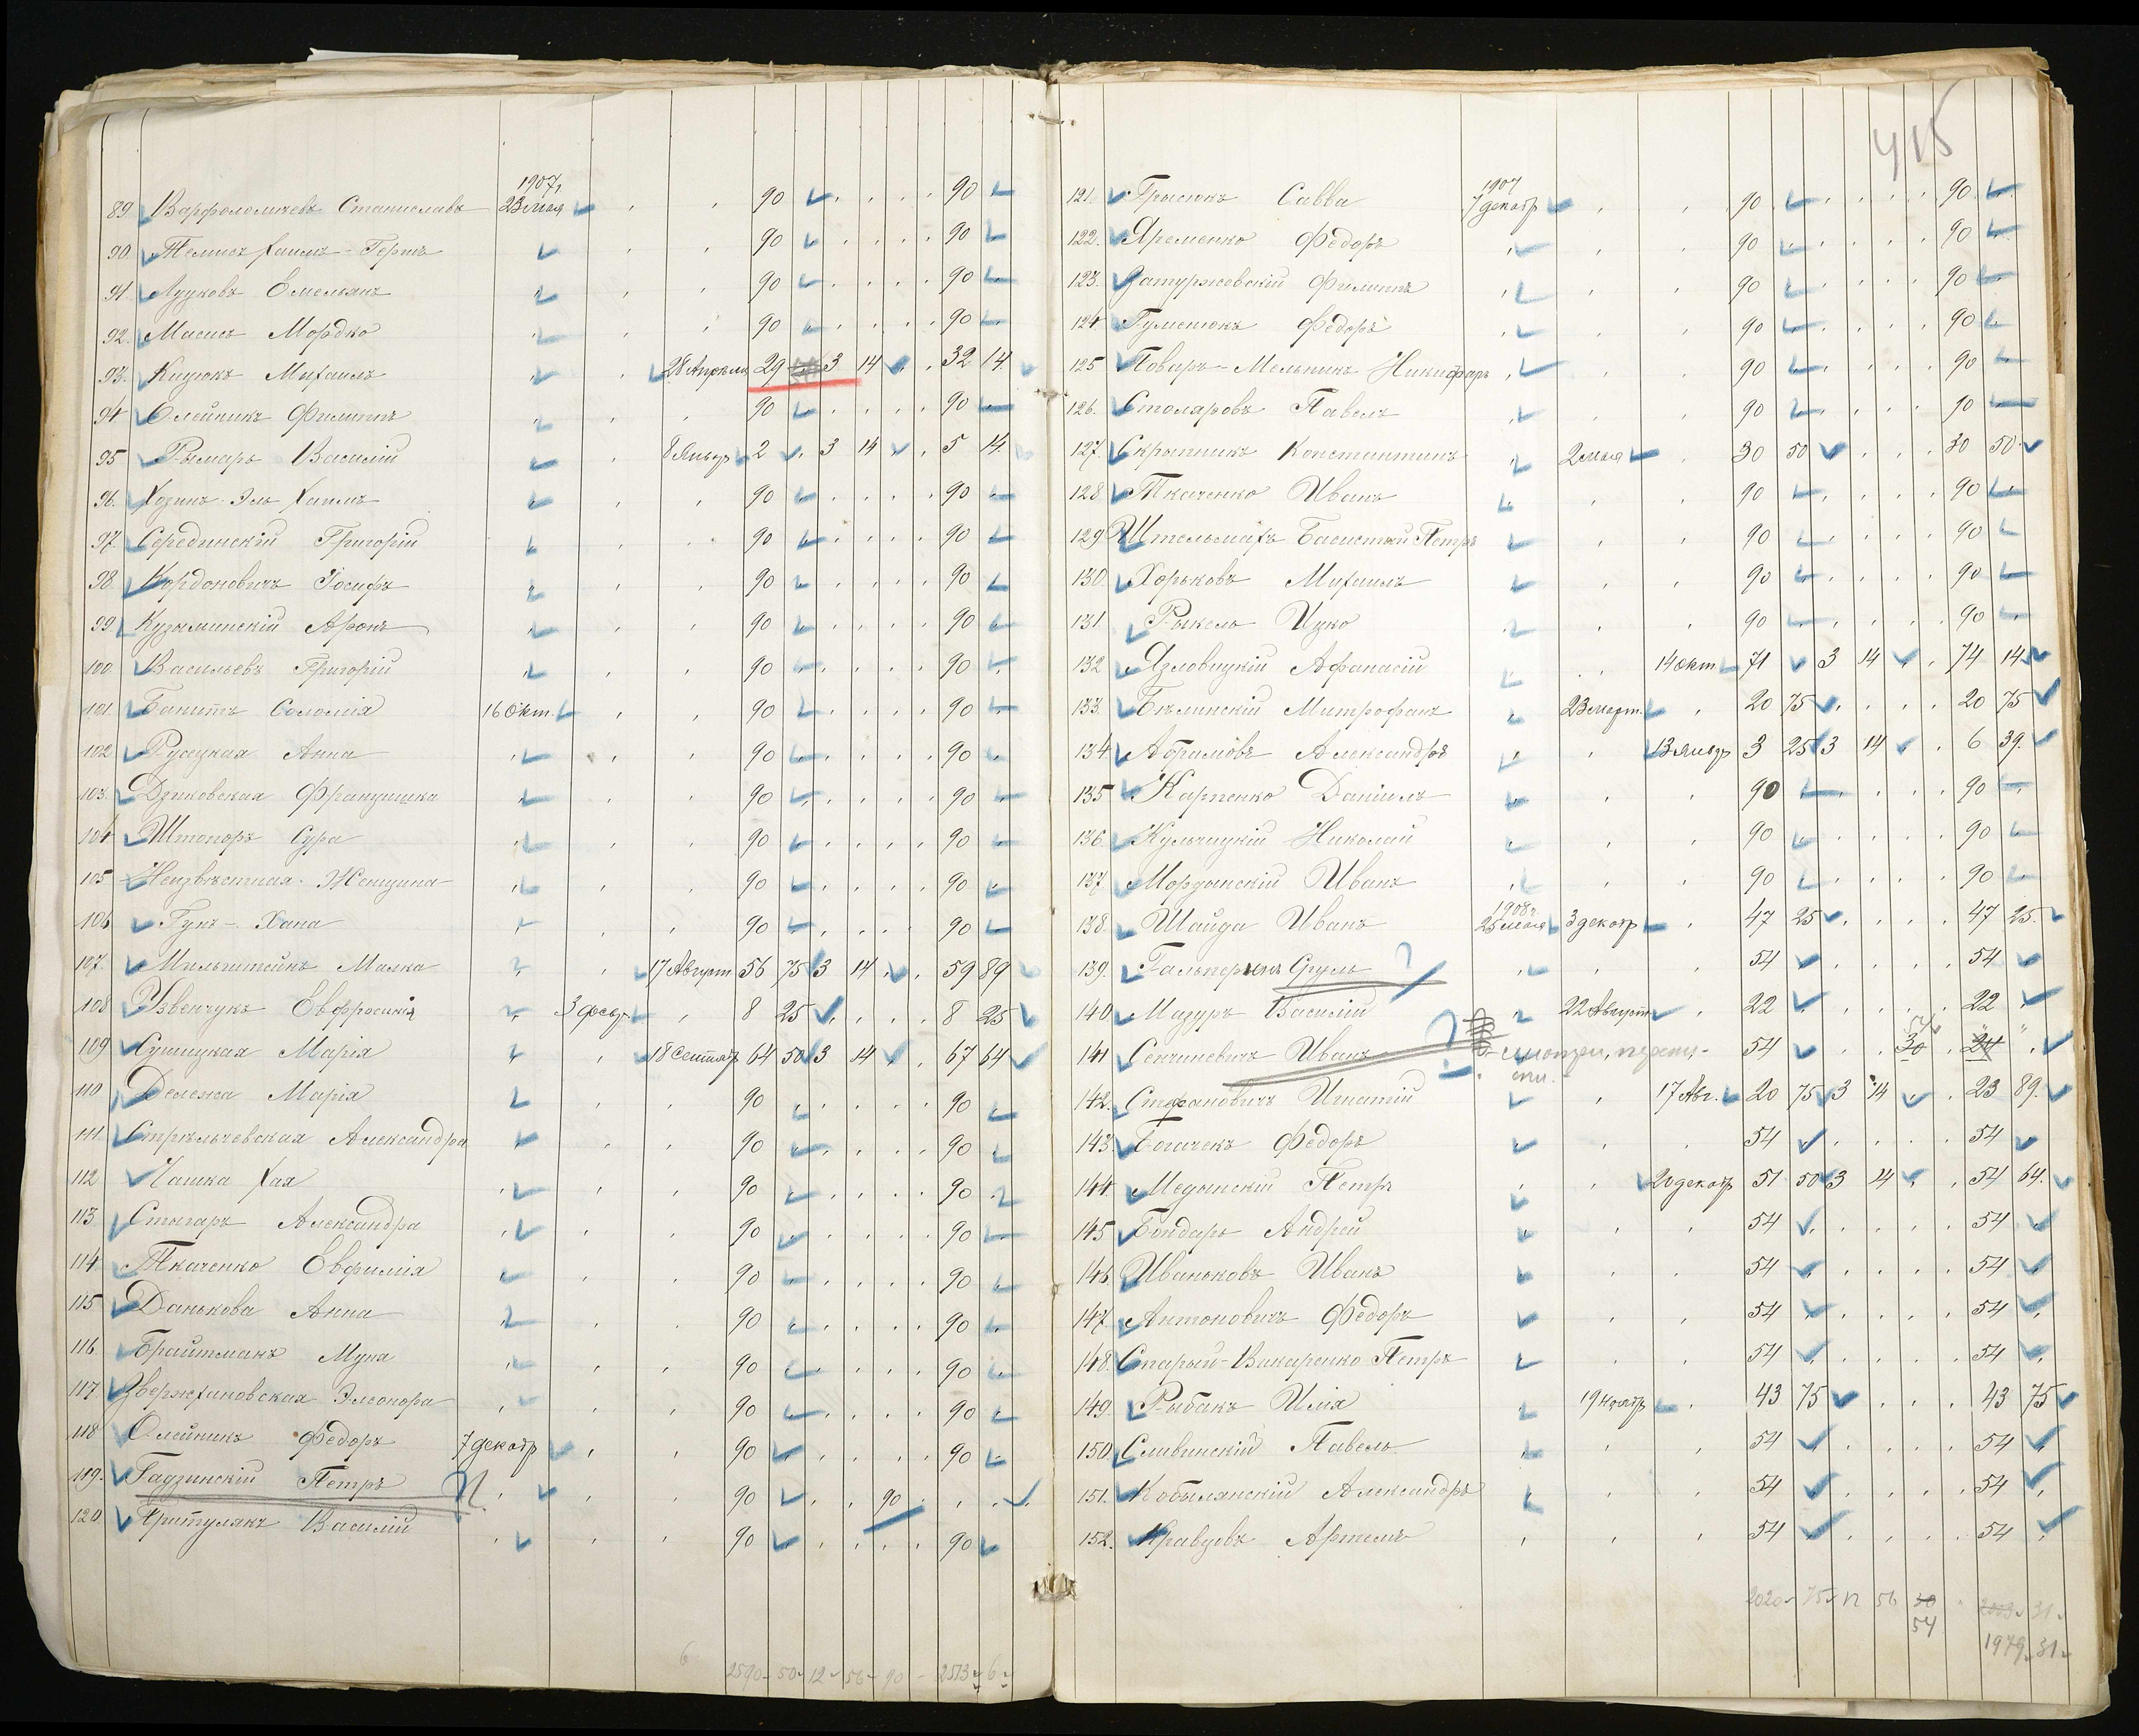 1907.
89 Варфоломеевъ Станиславъ 23 мая 90 90
90 Телисъ Хаимъ-Гершъ 90 90
91 Луцковъ Емельянъ 90 90
92. Масисъ Мордко 90 90
93. Кицюкъ Михаилъ 28 Апрѣля 29 3 14 32 14
94 Олейникъ Филиппъ 90 90
95 Рымарь Василій 8 Январ 2 3 14 5 14
96. Хозинъ Эль Хаимъ 90 90
97. Серединскій Григорій 90 90
98 Кордоновичъ Іосифъ 90 90
99. Кузьминскій Аронъ 90 90
100 Васильевъ Григорій 90 90
101 Банитъ Соломія 16 Окт. 90 90
102 Русецкая Анна 90 90
103. Дзиковская Францишка 90 90
104 Штопоръ Сура 90 90
105 Неизвѣстная Женщина 90 90
106 Гунъ-Хана 90 90
107. Мильштейнъ Малка 17 Август 56 75 3 14 59 89
108 Узвенчукъ Евфросинія 3 февр. 8 25 8 25
109 Сушицкая Марія 18 Сентябр 64 50 3 14 67 64
110 Дележа Марія 90 90
111. Стрѣльчевская Александра 90 90
112 Чашка Хая 90 90
113. Столяръ Александра 90 90
114 Ткаченко Евфимія 90 90
115 Данькова Анна 90 90
116 Брайтманъ Муня 90 90
117 Звержхановская Элеонора 90 90
118 Олейникъ Федоръ 7 декабр 90 90
119. Гадзинскій Петръ 90 90
120 Притулякъ Василій 90 90
6 2590 50 12 56 90 2513 6
415
1907
121. Грысюкъ Савва 7 декабр 90 90
122. Яременко Федоръ 90 90
123. Затуржевскій Филиппъ 90 90
124 Гуменюкъ Федоръ 90 90
125 Поваръ-Мельникъ Никифоръ 90 90
126. Столяровъ Павелъ 90 90
127. Скрипникъ Константинъ 2 мая 30 50 30 50
128 Ткаченко Иванъ 90 90
129 Штельмахъ Басистый Петръ 90 90
130. Хорьковъ Михаилъ 90 90
131 Рыкель Ицко 90 90
132 Язловицкій Афанасій 14 Окт. 71 3 14 74 14
133. Бѣлинскій Митрофанъ 23 март. 20 75 20 75
134 Абримовъ Александръ 13 Январ 3 25 3 14 6 39.
135 Карпенко Даніилъ 90 90
136 Кульчицкій Николай 90 90
137 Мордынскій Иванъ 90 90
1908 г.
138. Шайда Иванъ 25 мая 3 декабр 47 25 47 25.
139. Гальперинъ Сруль 54 54
140 Мазуръ Василій 22 Август 22 22
141 Сенчиневичъ Иванъ смотри, 54 30 24
142. Стефановичъ Игнатій 17 Авг. 20 75 3 14 23 89.
143 Богачекъ Федоръ 54 54
144. Медынскій Петръ 20 декабр 51 50 3 14 54 64.
145 Бондарь Андрей 54 54
146 Иваньковъ Иванъ 54 54
147. Антоновичъ Федоръ 54 54
148. Старый-Викаренко Петръ 54 54
149. Рыбакъ Илія 19 ноябр 43 75 43 75
150. Сливинскій Павелъ 54 54
151. Кобылянскій Александръ 54 54
152. Кравцовъ Артемъ 54 54
2020 75 12 56 30 2003 31
54 1979 31